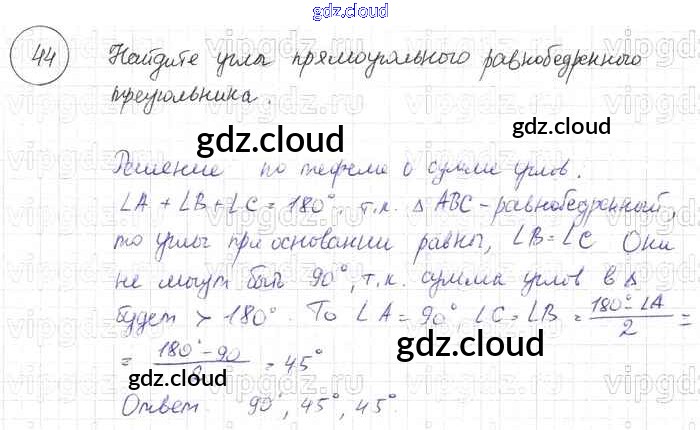 gdz.cloud
44 Найдите углы прямоугольного равнобедренного
треугольника.
gdz.cloud
Решение по теореме о сумме углов.
∠A + ∠B + ∠C = 180°, т.к. △ ABC - равнобедренный,
то углы при основании равны, ∠B = ∠C Они
не могут быть 90°, т.к. сумма углов в △
будет > 180° То ∠A = 90°, ∠C = ∠B = (180° - ∠A)/2 =
= (180° - 90)/2 = 45°
gdz.cloud
gdz.cloud
Ответ 90°, 45°, 45°.
gdz.cloud